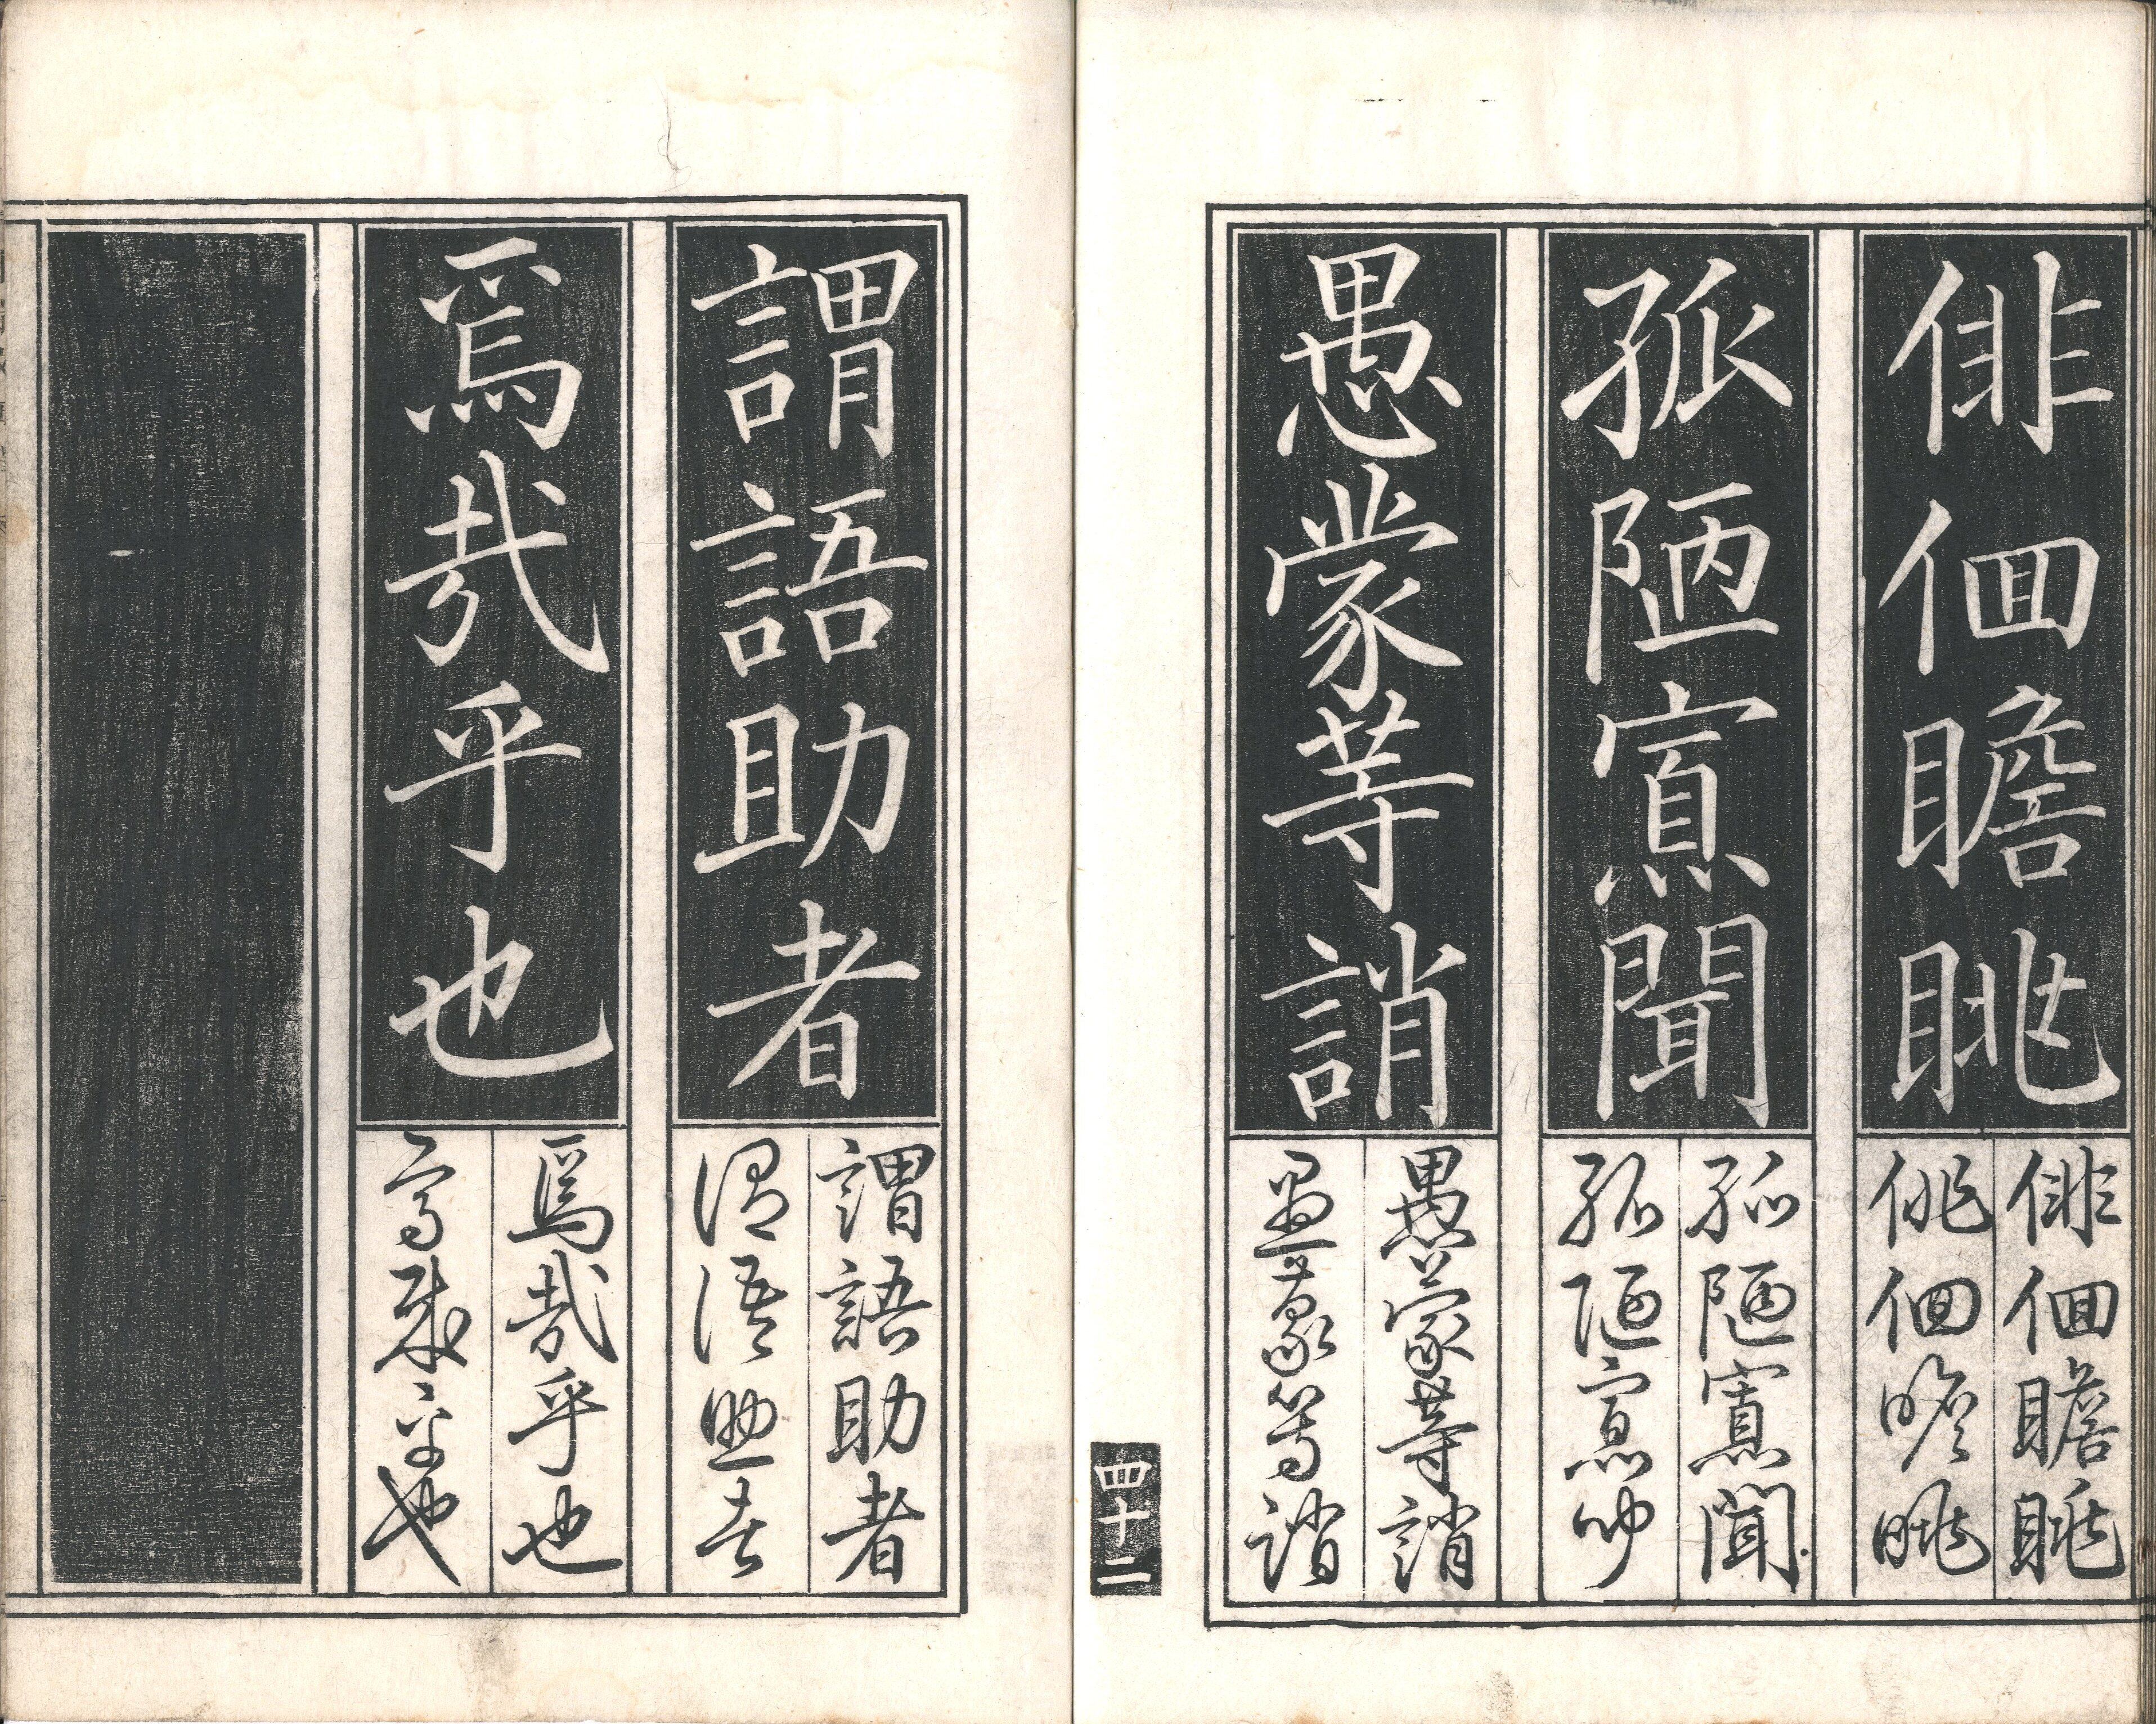 俳佪瞻眺
俳佪瞻眺
俳佪瞻眺
孤陋寡聞
孤陋寡聞
孤陋寡聞
愚蒙等誚
愚蒙等誚
愚蒙等誚
四十二
謂語助者
謂語助者
謂語助者
焉哉乎也
焉哉乎也
焉哉乎也